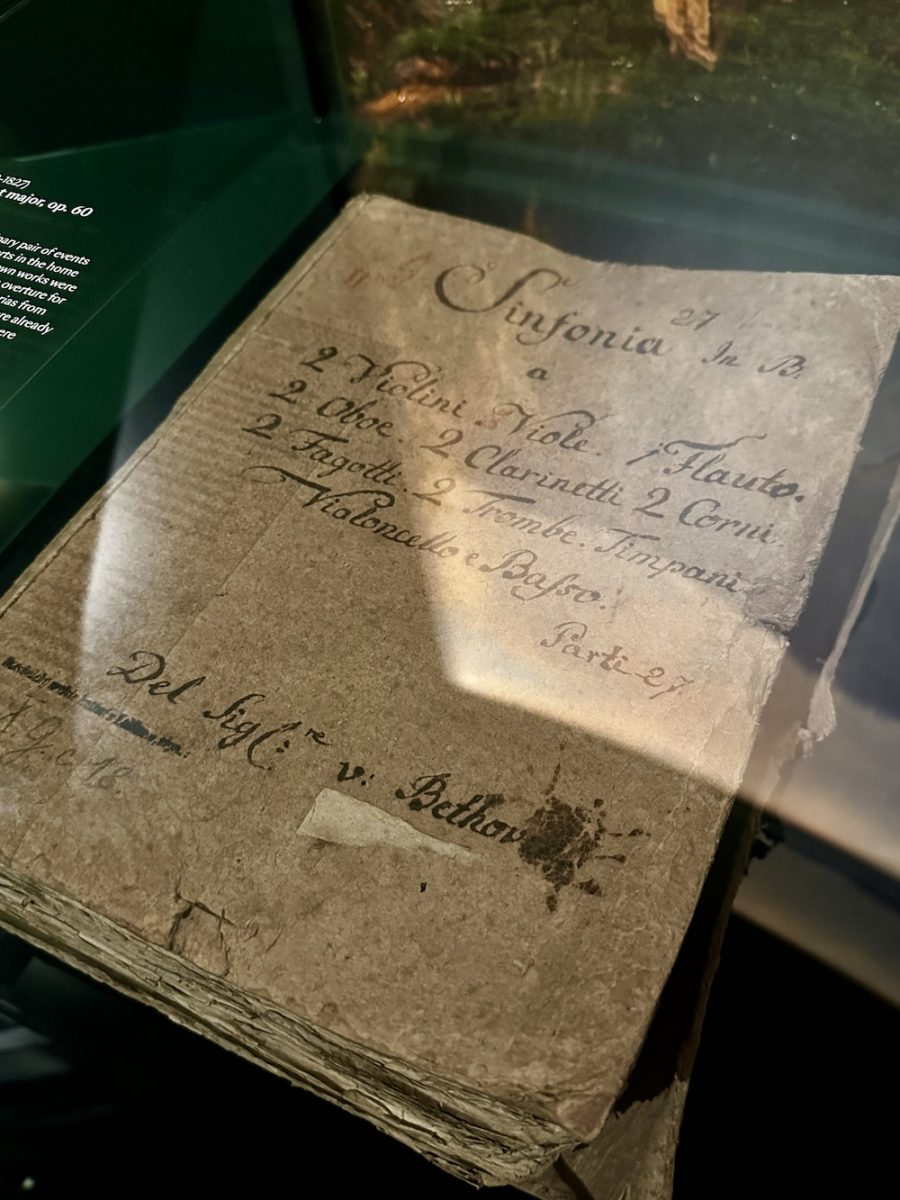 -1827)
t major, op. 60
ary pair of events
rts in the home
own works were
overture for
rias from
re already
ere
27
Sinfonia In B:
a
2 Violini Viole. 1 Flauto.
2 Oboe. 2 Clarinetti 2 Corni.
2 Fagotti. 2 Trombe. Timpani
Violoncello e Baſso.
Parti 27
Del Sigl:re v: Bethov